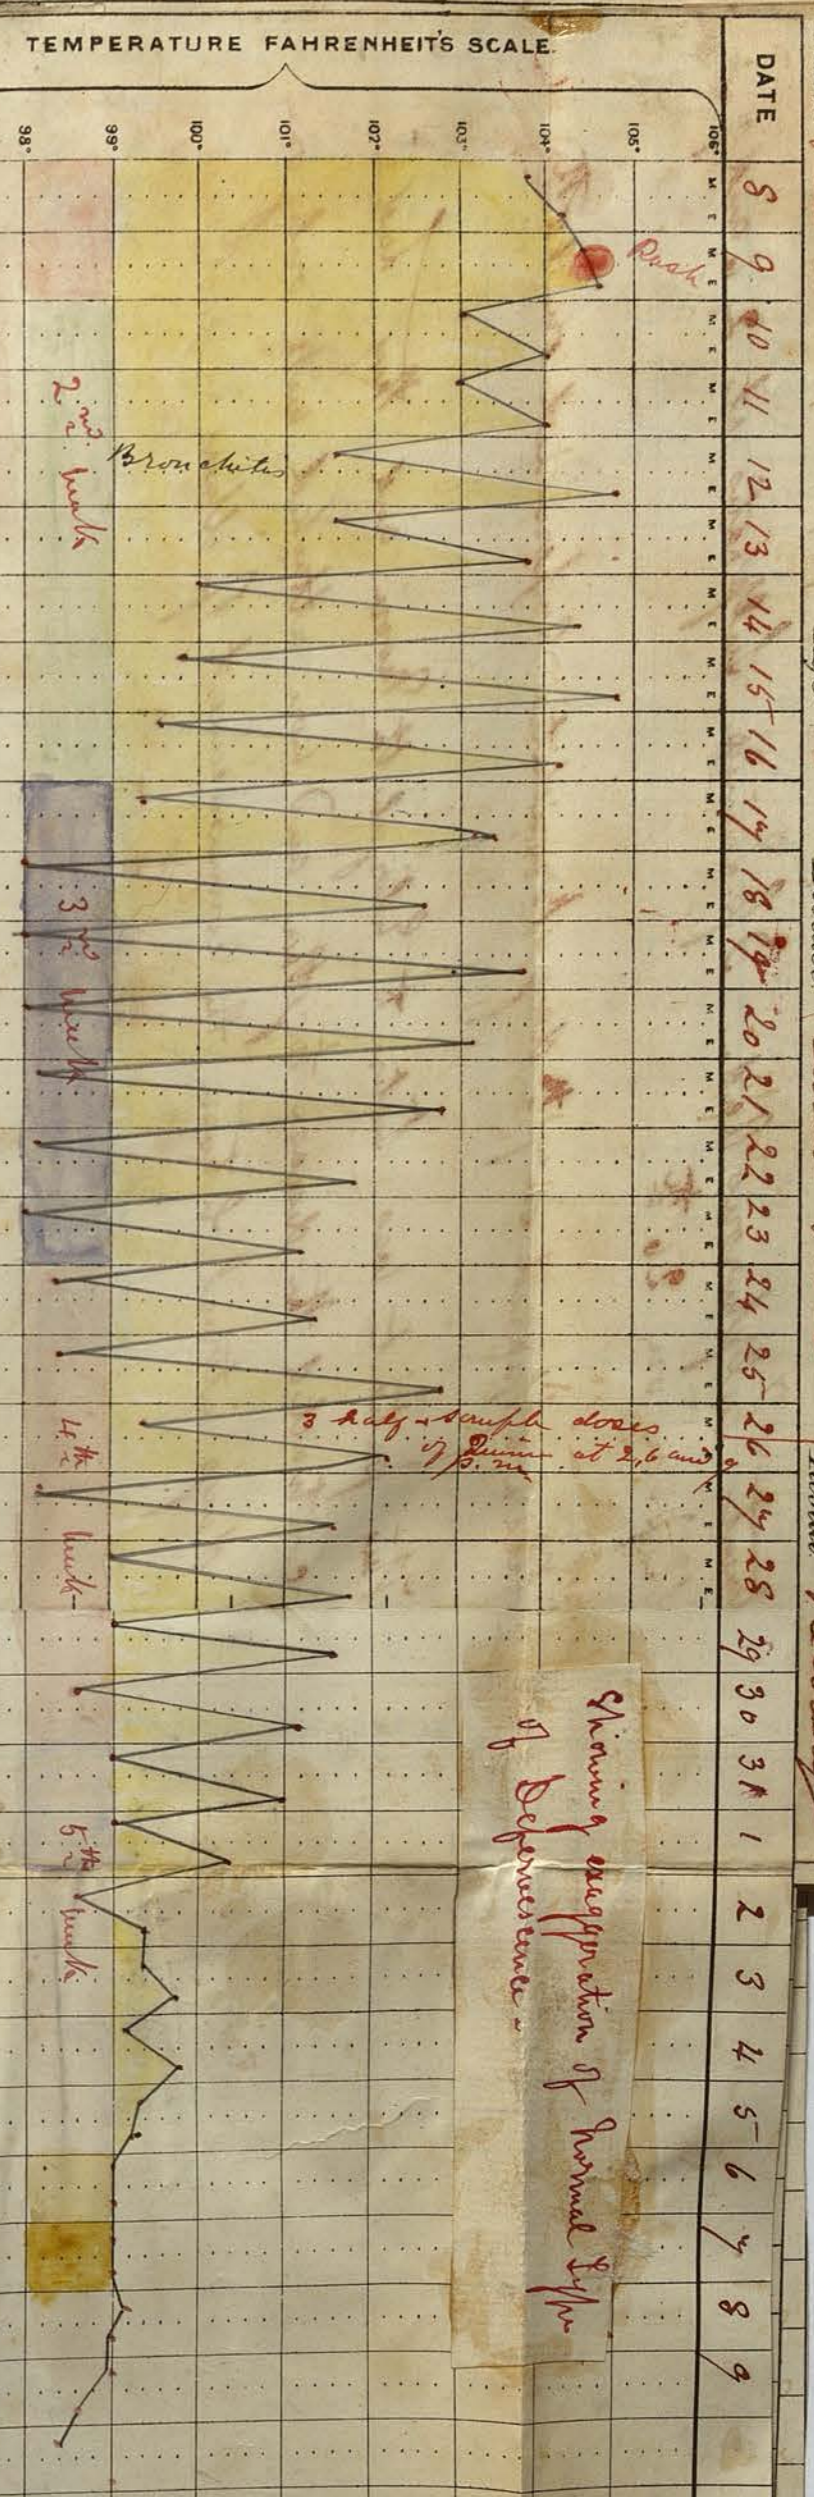 TEMPERATURE FAHRENHEIT'S SCALE.
DATE
98° 99° 100° 101° 102° 103° 104° 105° 106°
8 9 10 11 12 13 14 15 16 17 18 19 20 21 22 23 24 25 26 27 28 29 30 31 1 2 3 4 5 6 7 8 9
M E M E M E M E M E M E M E M E M E M E M E M E M E M E M E M E M E M E M E M E M E
Rash
Bronchitis
2nd week
3rd week
4th week
5th week
3 half-scruple doses
of Quinine at 2, 6 and 9
p.m.
Showing exaggeration of Normal Type
of Defervescence.